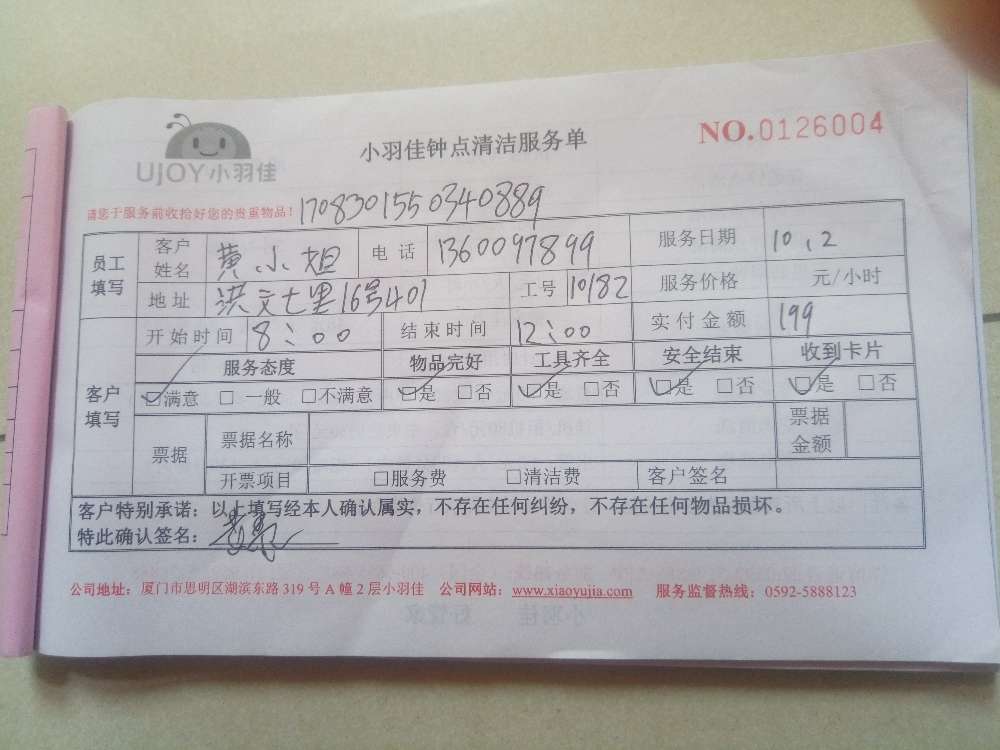 UJOY小羽佳
小羽佳钟点清洁服务单
NO.0126004
请您于服务前收拾好您的贵重物品！ 1708301550340889
员工填写 客户姓名 黄小姐 电话 1360097899 服务日期 10、2
地址 洪文七里16号401 工号 10182 服务价格 元/小时
开始时间 8：00 结束时间 12：00 实付金额 199
客户填写 服务态度 物品完好 工具齐全 安全结束 收到卡片
☑满意 □一般 □不满意 ☑是 □否 ☑是 □否 ☑是 □否 ☑是 □否
票据 票据名称 票据金额
开票项目 □服务费 □清洁费 客户签名
客户特别承诺：以上填写经本人确认属实，不存在任何纠纷，不存在任何物品损坏。
特此确认签名：
公司地址：厦门市思明区湖滨东路 319 号 A 幢 2 层小羽佳 公司网站：www.xiaoyujia.com 服务监督热线：0592-5888123